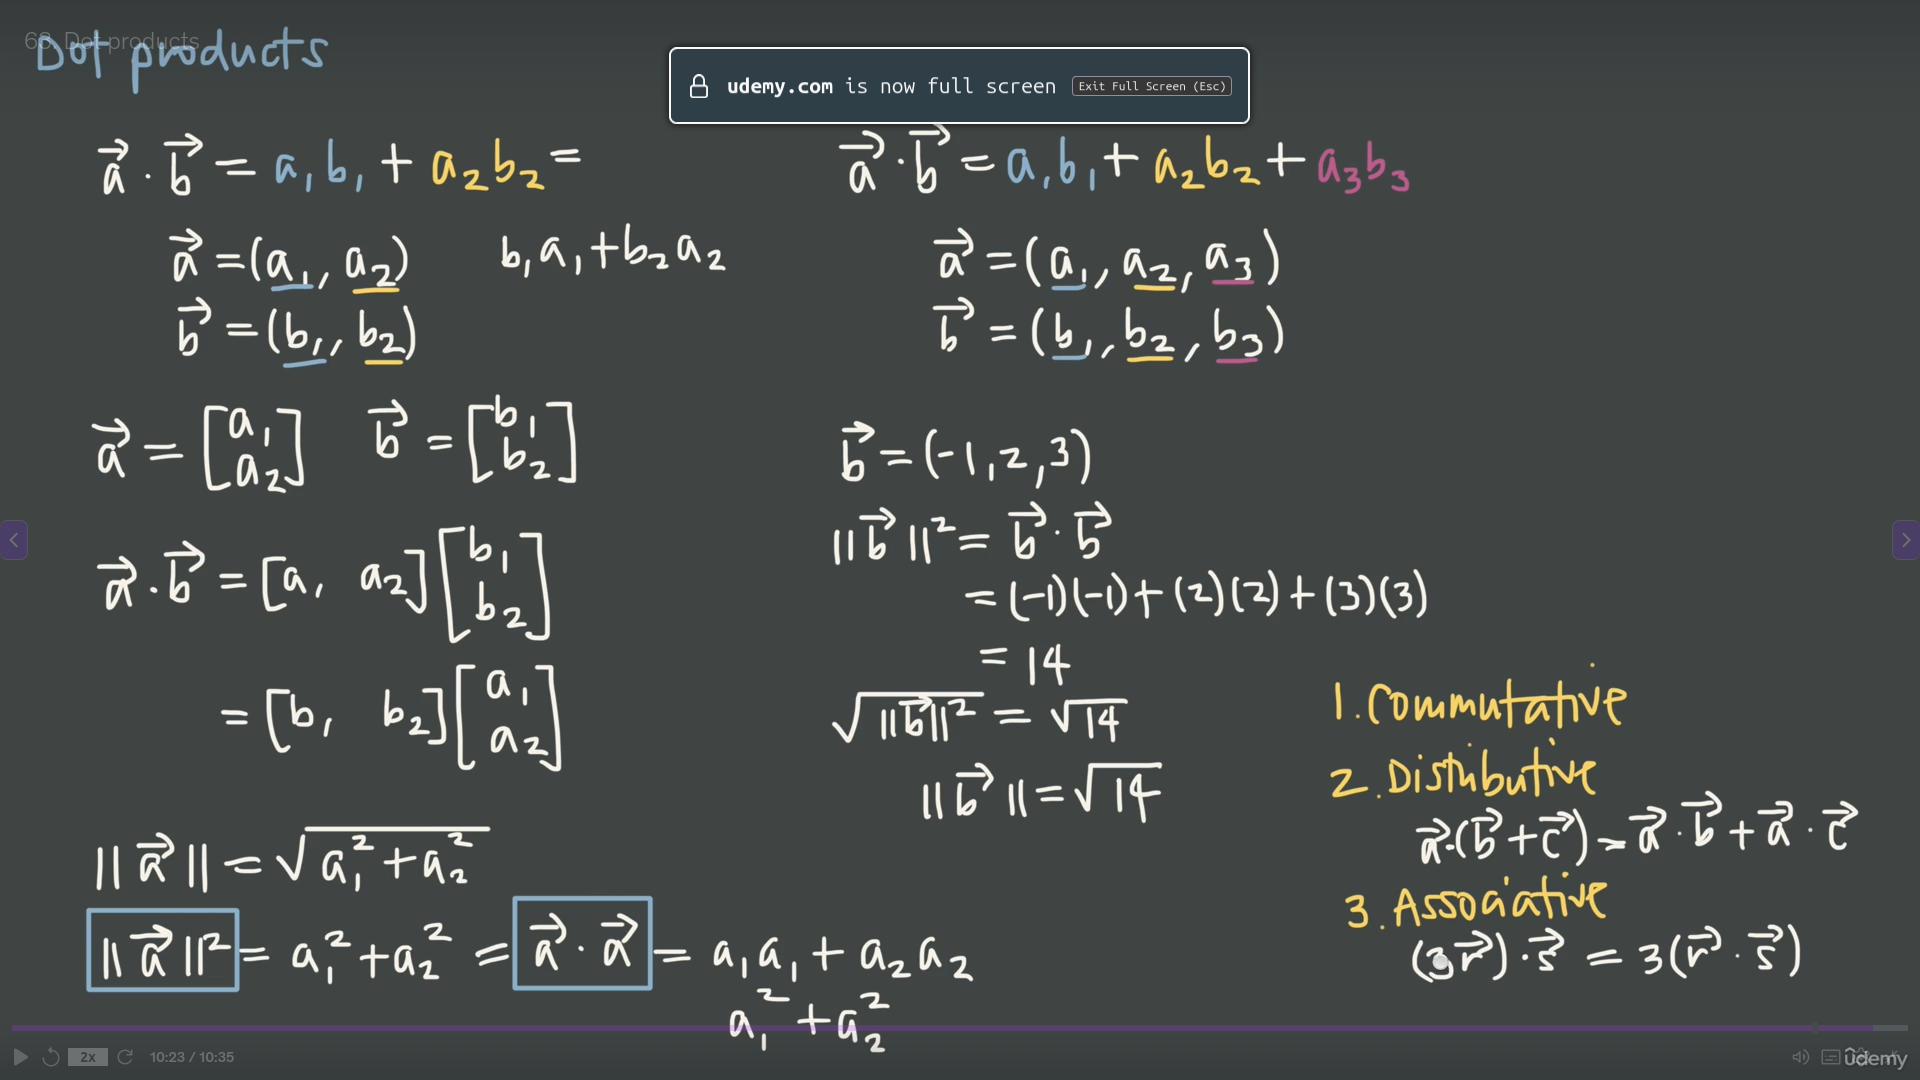 68. Dot products
Dot products
udemy.com is now full screen Exit Full Screen (Esc)
a⃗ · b⃗ = a₁b₁ + a₂b₂ =
a⃗ = (a₁, a₂) b₁a₁ + b₂a₂
b⃗ = (b₁, b₂)
a⃗ = [a₁ a₂] b⃗ = [b₁ b₂]
a⃗ · b⃗ = [a₁ a₂] [b₁ b₂]
= [b₁ b₂] [a₁ a₂]
||a⃗|| = √(a₁² + a₂²)
||a⃗||² = a₁² + a₂² = a⃗ · a⃗ = a₁a₁ + a₂a₂
a₁² + a₂²
a⃗ · b⃗ = a₁b₁ + a₂b₂ + a₃b₃
a⃗ = (a₁, a₂, a₃)
b⃗ = (b₁, b₂, b₃)
b⃗ = (-1, 2, 3)
||b⃗||² = b⃗ · b⃗
= (-1)(-1) + (2)(2) + (3)(3)
= 14
√||b⃗||² = √14
||b⃗|| = √14
1. Commutative
2. Distributive
a⃗·(b⃗ + c⃗) = a⃗ · b⃗ + a⃗ · c⃗
3. Associative
(3r⃗) · s⃗ = 3(r⃗ · s⃗)
2x 10:23 / 10:35
udemy